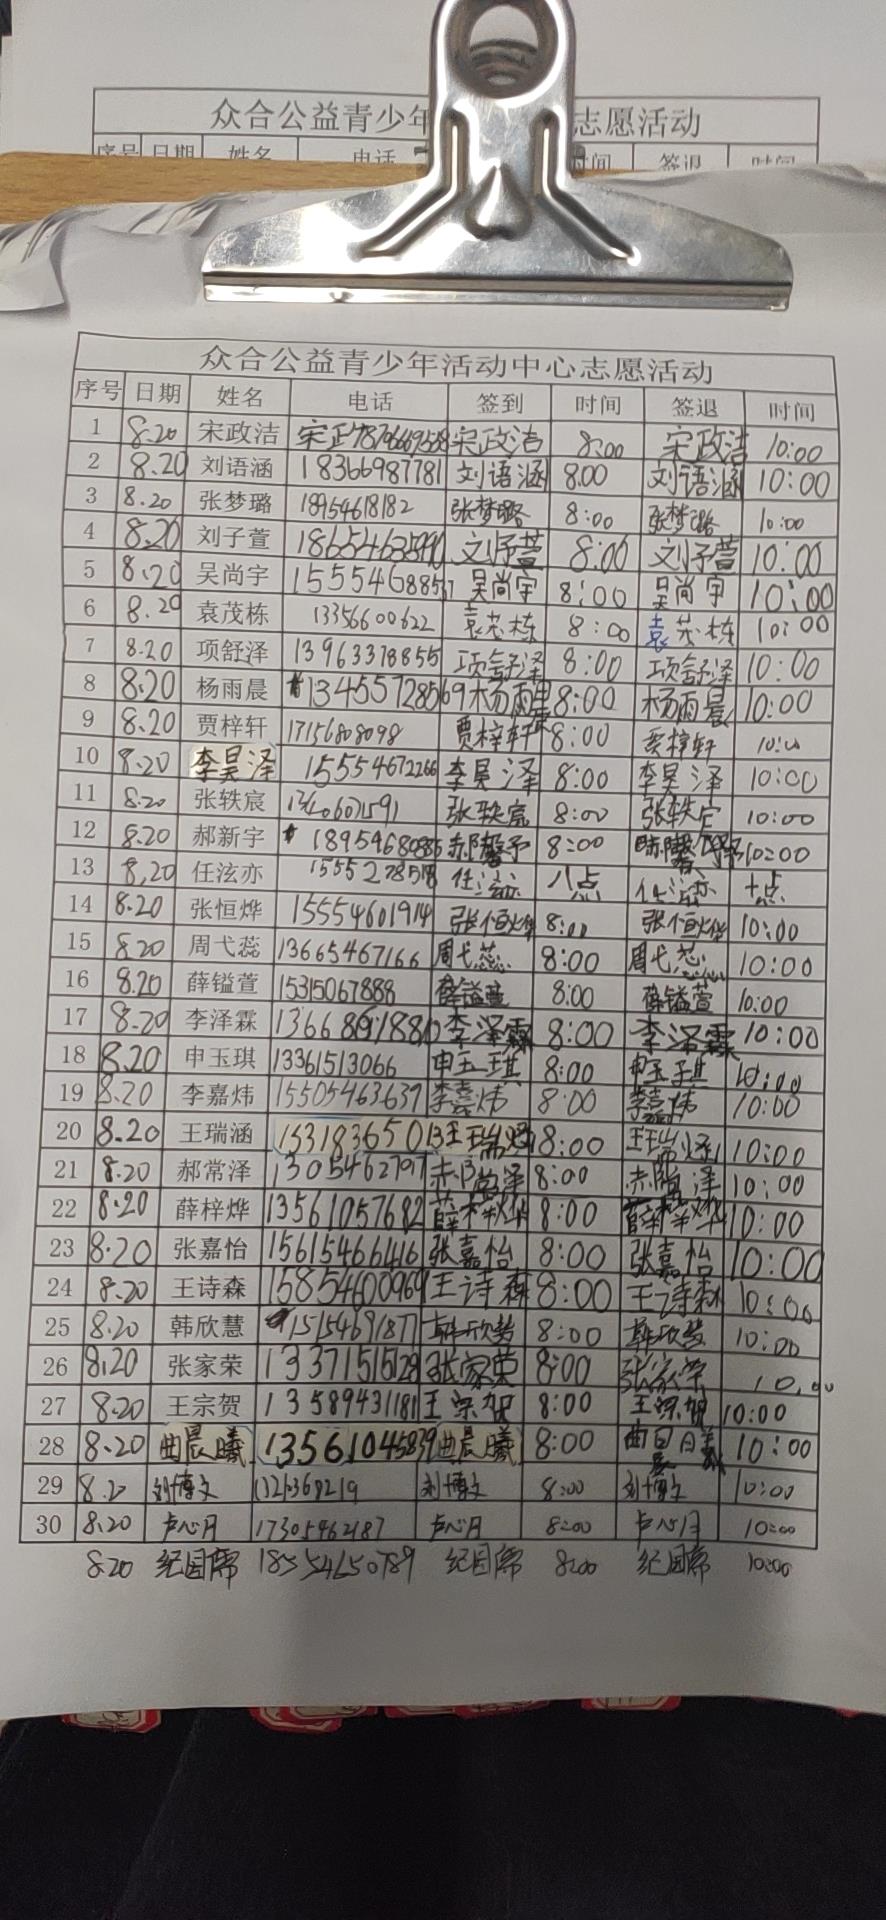 众合公益青少年 志愿活动
序号 日期 姓名 电话 时间 签退 时间
众合公益青少年活动中心志愿活动
序号 日期 姓名 电话 签到 时间 签退 时间
1 8.20 宋政洁 宋政洁 8:00 宋政洁 10:00
2 8.20 刘语涵 18366987781 刘语涵 8.00 刘语涵 10:00
3 8.20 张梦璐 18954618182 张梦璐 8:00 张梦璐 10:00
4 8.20 刘子萱 刘子萱 8:00 刘子萱 10:00
5 8.20 吴尚宇 吴尚宇 8:00 吴尚宇 10:00
6 8.20 袁茂栋 13356600622 袁茂栋 8:00 袁茂栋 10:00
7 8.20 项舒泽 13963378855 项舒泽 8:00 项舒泽 10:00
8 8.20 杨雨晨 13455728569 杨雨晨 8:00 杨雨晨 10:00
9 8.20 贾梓轩 17156808098 贾梓轩 8:00 贾梓轩 10:00
10 8.20 李昊泽 15554672266 李昊泽 8:00 李昊泽 10:00
11 8.20 张轶宸 张轶宸 8:00 10:00
12 8.20 郝新宇 8:00 10:00
13 8,20 任泫亦 任泫亦 八点 任泫亦 十点
14 8.20 张恒烨 15554601914 张恒烨 8:00 张恒烨 10:00
15 8.20 周弋蕊 13665467166 周弋蕊 8:00 周弋蕊 10:00
16 8.20 薛镒萱 15315067888 薛镒萱 8:00 薛镒萱 10:00
17 8.20 李泽霖 李泽霖 8:00 李泽霖 10:00
18 8.20 申玉琪 13361513066 申玉琪 8:00 申玉琪 10:00
19 8.20 李嘉炜 15505463639 李嘉炜 8:00 李嘉炜 10:00
20 8.20 王瑞涵 15318365013 8:00 10:00
21 8.20 郝常泽 13054627917 郝常泽 8:00 郝常泽 10:00
22 8.20 薛梓烨 13561057682 薛梓烨 8:00 薛梓烨 10:00
23 8.20 张嘉怡 15615466416 张嘉怡 8:00 张嘉怡 10:00
24 8.20 王诗森 15854600969 王诗森 8:00 王诗森 10:00
25 8.20 韩欣慧 15154691877 韩欣慧 8:00 韩欣慧 10:00
26 8.20 张家荣 13371515128 张家荣 8:00 张家荣 10:00
27 8.20 王宗贺 13589431181 王宗贺 8:00 王宗贺 10:00
28 8.20 曲晨曦 13561045839 曲晨曦 8:00 曲晨曦 10:00
29 8.20 刘博文 刘博文 8:00 刘博文 10:00
30 8.20 卢心月 17305462187 卢心月 8:00 卢心月 10:00
8.20 纪国席 18554650789 纪国席 8:00 纪国席 10:00